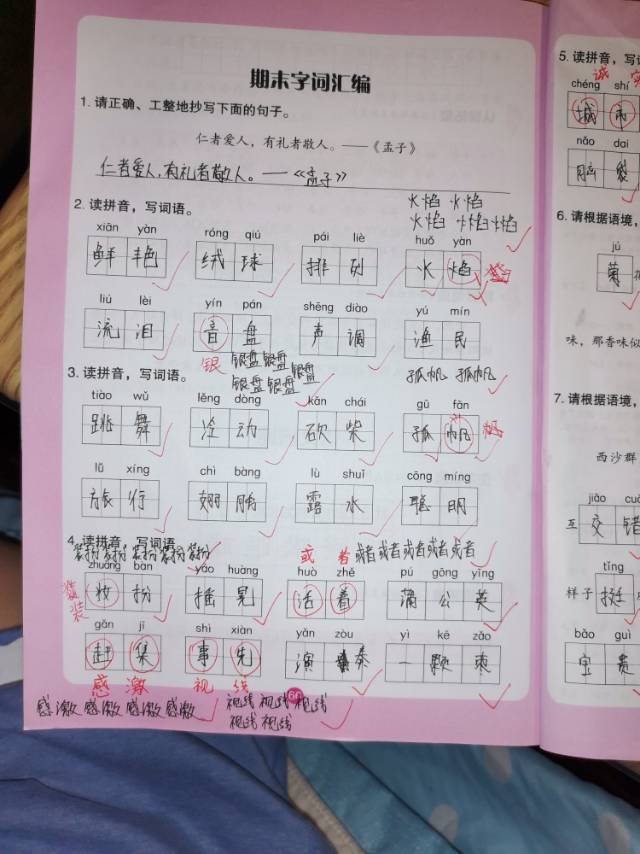 期末字词汇编
1.请正确、工整地抄写下面的句子。
仁者爱人，有礼者敬人。——《孟子》
仁者爱人,有礼者敬人。——《孟子》
2.读拼音，写词语。
火焰 火焰
火焰 火焰 火焰
xiān yàn róng qiú pái liè huǒ yàn
鲜艳 绒球 排列 火焰
liú lèi yín pán shēng diào yú mín
流泪 音盘 声调 渔民
银 银盘 银盘 银盘
银盘 银盘 银盘
孤帆 孤帆
3.读拼音，写词语。
tiào wǔ lěng dòng kǎn chái gū fān
跳舞 冷动 砍柴 孤帆 帆
lǚ xíng chì bǎng lù shuǐ cōng míng
旅行 翅膀 露水 聪明
4.读拼音，写词语。
装扮 装扮 装扮 装扮 装扮
或者 或者 或者 或者 或者 或者
zhuāng bàn yáo huàng huò zhě pú gōng yīng
妆扮 摇晃 活着 蒲公英
装
gǎn jī shì xiàn yǎn zòu yì kē zǎo
赶集 事先 演奏 一颗枣
感激 视线
感激 感激 感激 感激
视线 视线 视线
视线 视线
5.读拼音，写
诚实
chéng shí
城市
nǎo dai
脑袋
6.请根据语境，
jú
菊
味，那香味似
7.请根据语境，
西沙群
jiāo cuò
至 交错
tǐng
样子 挺
bǎo guì
宝贵